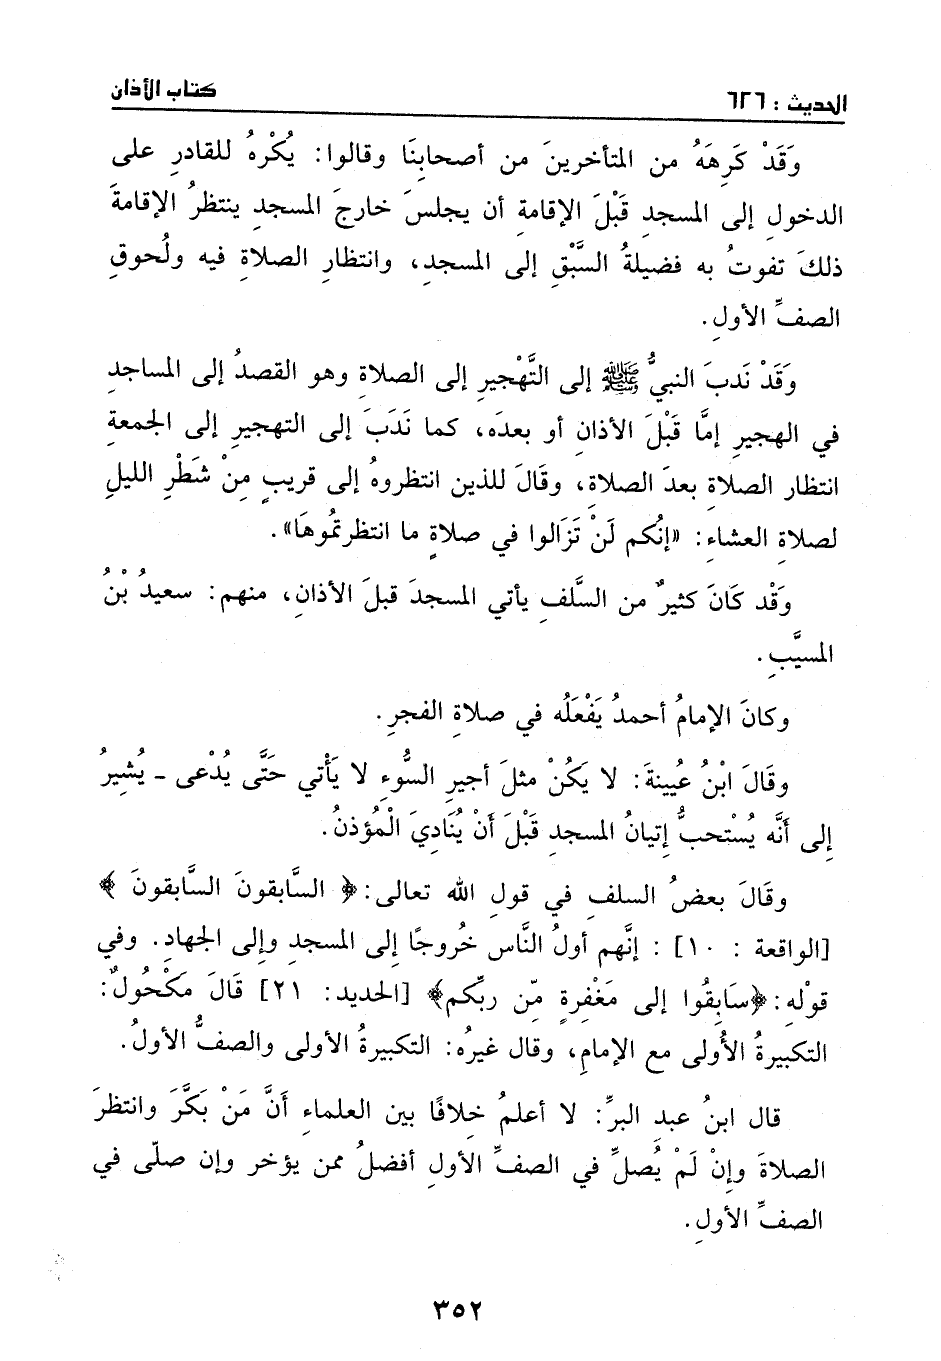 الحديث : ٦٢٦
كتاب الأذان
وَقَدْ كَرِهَهُ من المتأخرينَ من أصحابِنَا وقالوا: يُكْرهُ للقادرِ على
الدخولِ إلى المسجدِ قَبْلَ الإقامةِ أن يجلسَ خارجَ المسجدِ ينتظرُ الإقامةَ
ذلكَ تفوتُ به فضيلةُ السَّبْقِ إلى المسجدِ، وانتظارِ الصلاةِ فيه ولُحوقِ
الصفِّ الأولِ.
وَقَدْ نَدبَ النبيُّ ﷺ إلى التَّهْجيرِ إلى الصلاةِ وهو القصدُ إلى المساجدِ
في الهجيرِ إمَّا قَبْلَ الأذانِ أو بعدَه، كما نَدَبَ إلى التهجيرِ إلى الجمعةِ
انتظار الصلاةِ بعدَ الصلاةِ، وقَالَ للذين انتظروهُ إلى قريبٍ مِنْ شَطْرِ الليلِ
لصلاةِ العشاءِ: «إنُكم لَنْ تَزَالوا في صلاةٍ ما انتظرتمُوهَا».
وَقْد كَانَ كثيرٌ من السَّلفِ يأتي المسجدَ قبلَ الأذانِ، منهم: سعيدُ بْنُ
المسيَّبِ.
وكانَ الإمامُ أحمدُ يَفْعَلُه في صلاةِ الفجرِ.
وقَالَ ابْنُ عُيينةَ: لا يَكُنْ مثلَ أجيرِ السُّوءِ لا يَأْتي حَتَّى يُدْعى ـ يُشيرُ
إلى أَنَّه يُسْتحبُّ إتيانُ المسجدِ قَبْلَ أنْ يُنَاديَ الْمُؤذنُ.
وقَالَ بعضُ السلفِ في قولِ الله تعالى: ﴿ السَّابقونَ السَّابقونَ ﴾
[الواقعة : ١٠] : إنَّهم أولُ النَّاسِ خُروجًا إلى المسجدِ وإلى الجهادِ. وفي
قوْلهِ: ﴿سَابِقُوا إلى مَغْفِرةٍ مِّن ربِّكم﴾ [الحديد: ٢١] قَالَ مَكْحُولٌ:
التكبيرةُ الأُولى مع الإمامِ، وقال غيرُه: التكبيرةُ الأولى والصفُّ الأولُ.
قال ابنُ عبد البرِّ: لا أعلمُ خلافًا بين العلماءِ أَنَّ مَنْ بَكَّرَ وانتظرَ
الصلاةَ وإنْ لَمْ يُصلِّ في الصفِّ الأولِ أفضلُ ممن يؤخر وإن صلّى في
الصفِّ الأولِ.
٣٥٢